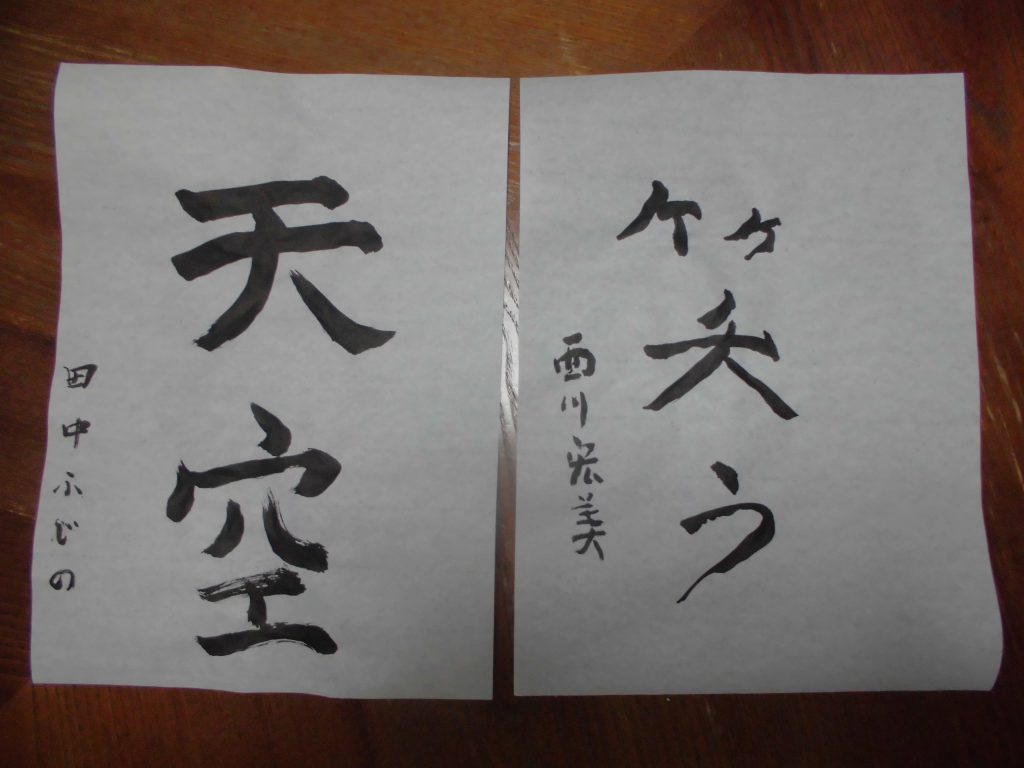 天空
田中ふじの
笑う
西川宏美